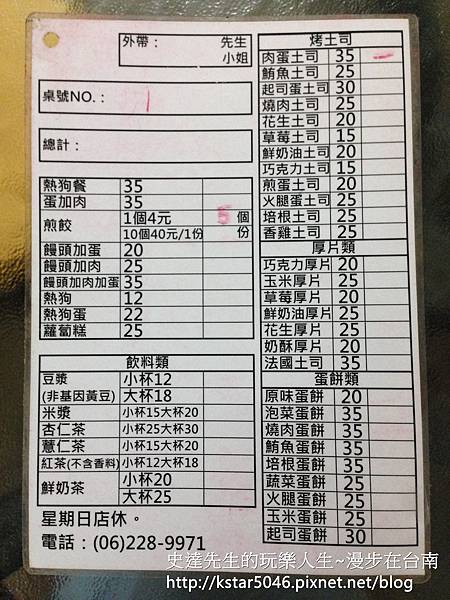 外帶： 先生
小姐
桌號NO.： 1
總計：
熱狗餐 35
蛋加肉 35
煎餃 1個4元 5 個
10個40元/1份 份
饅頭加蛋 20
饅頭加肉 25
饅頭加肉加蛋 35
熱狗 12
熱狗蛋 22
蘿蔔糕 25
飲料類
豆漿 小杯12
(非基因黃豆) 大杯18
米漿 小杯15大杯20
杏仁茶 小杯25大杯30
薏仁茶 小杯15大杯20
紅茶(不含香料) 小杯12大杯18
鮮奶茶 小杯20
大杯25
星期日店休。
電話：(06)228-9971
烤土司
肉蛋土司 35
鮪魚土司 25
起司蛋土司 30
燒肉土司 25
花生土司 20
草莓土司 15
鮮奶油土司 20
巧克力土司 15
煎蛋土司 20
火腿蛋土司 25
培根土司 25
香雞土司 25
厚片類
巧克力厚片 20
玉米厚片 25
草莓厚片 20
鮮奶油厚片 25
花生厚片 25
奶酥厚片 20
法國土司 35
蛋餅類
原味蛋餅 20
泡菜蛋餅 35
燒肉蛋餅 35
鮪魚蛋餅 35
培根蛋餅 35
蔬菜蛋餅 25
火腿蛋餅 25
玉米蛋餅 25
起司蛋餅 30
史達先生的玩樂人生~漫步在台南
http://kstar5046.pixnet.net/blog